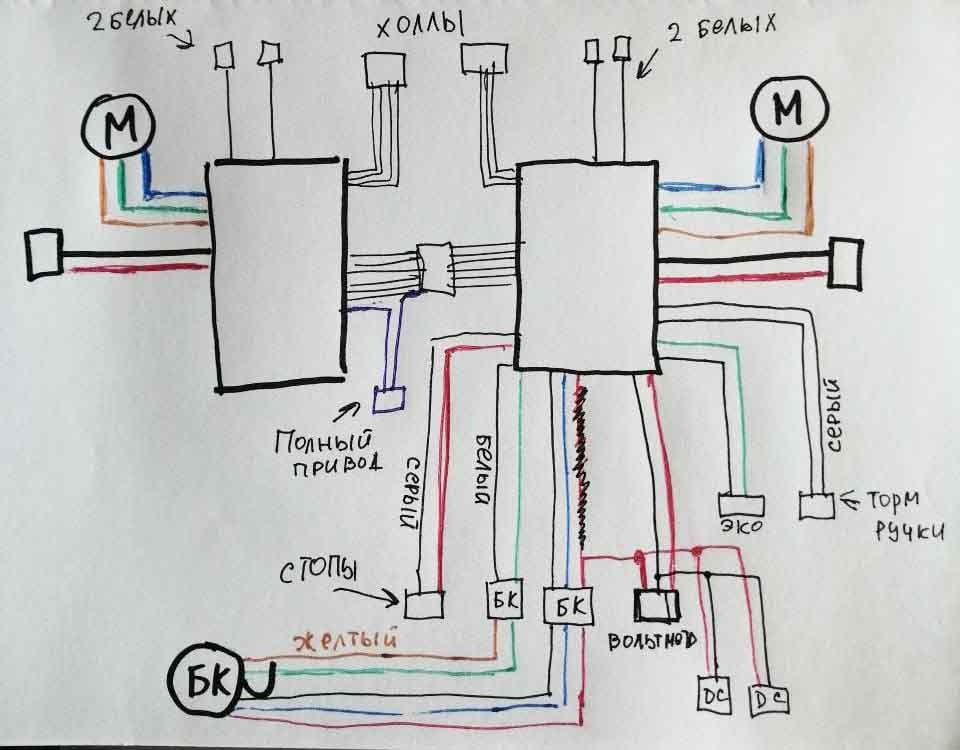 2 БЕЛЫХ
ХОЛЛЫ
2 БЕЛЫХ
М
М
ПОЛНЫЙ
ПРИВОД
СЕРЫЙ
БЕЛЫЙ
СЕРЫЙ
ЭКО
ТОРМ
РУЧКИ
СТОПЫ
БК
БК
ЖЕЛТЫЙ
БК
DC
DC